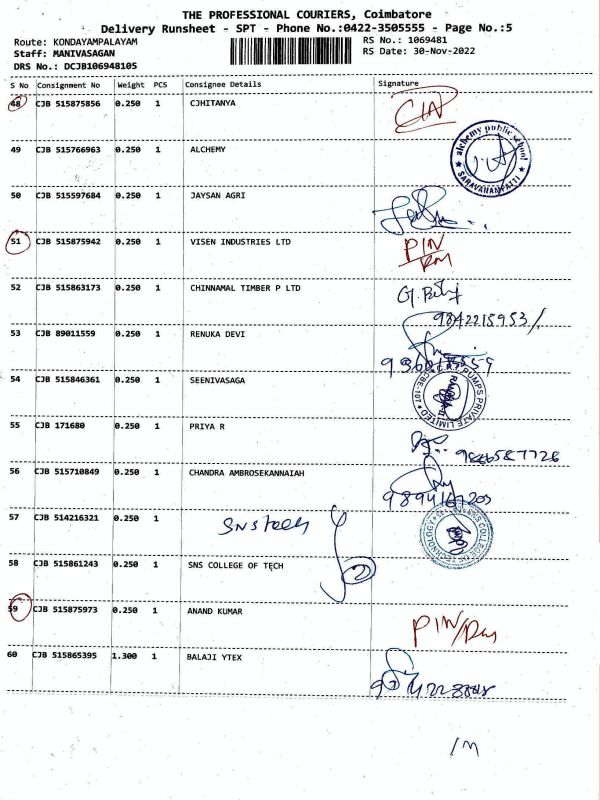 THE PROFESSIONAL COURIERS, Coimbatore
Delivery Runsheet - SPT - Phone No.:0422-3505555 - Page No.:5
Route: KONDAYAMPALAYAM RS No.: 1069481
Staff: MANIVASAGAN RS Date: 30-Nov-2022
DRS No.: DCJB106948105
S No Consignment No Weight PCS Consignee Details Signature
48 CJB 515875856 0.250 1 CJHITANYA
49 CJB 515766963 0.250 1 ALCHEMY
alchemy public school
SARAVANAMPATTI
50 CJB 515597684 0.250 1 JAYSAN AGRI
51 CJB 515875942 0.250 1 VISEN INDUSTRIES LTD PIN
52 CJB 515863173 0.250 1 CHINNAMAL TIMBER P LTD
9842215953/
53 CJB 89011559 0.250 1 RENUKA DEVI
54 CJB 515846361 0.250 1 SEENIVASAGA
PUMPS PRIVATE LIMITED
55 CJB 171680 0.250 1 PRIYA R
56 CJB 515710849 0.250 1 CHANDRA AMBROSEKANNAIAH
57 CJB 514216321 0.250 1 SNS Tech
COLLEGE OF TECHNOLOGY
58 CJB 515861243 0.250 1 SNS COLLEGE OF TECH
59 CJB 515875973 0.250 1 ANAND KUMAR
PIN/
60 CJB 515865395 1.300 1 BALAJI YTEX